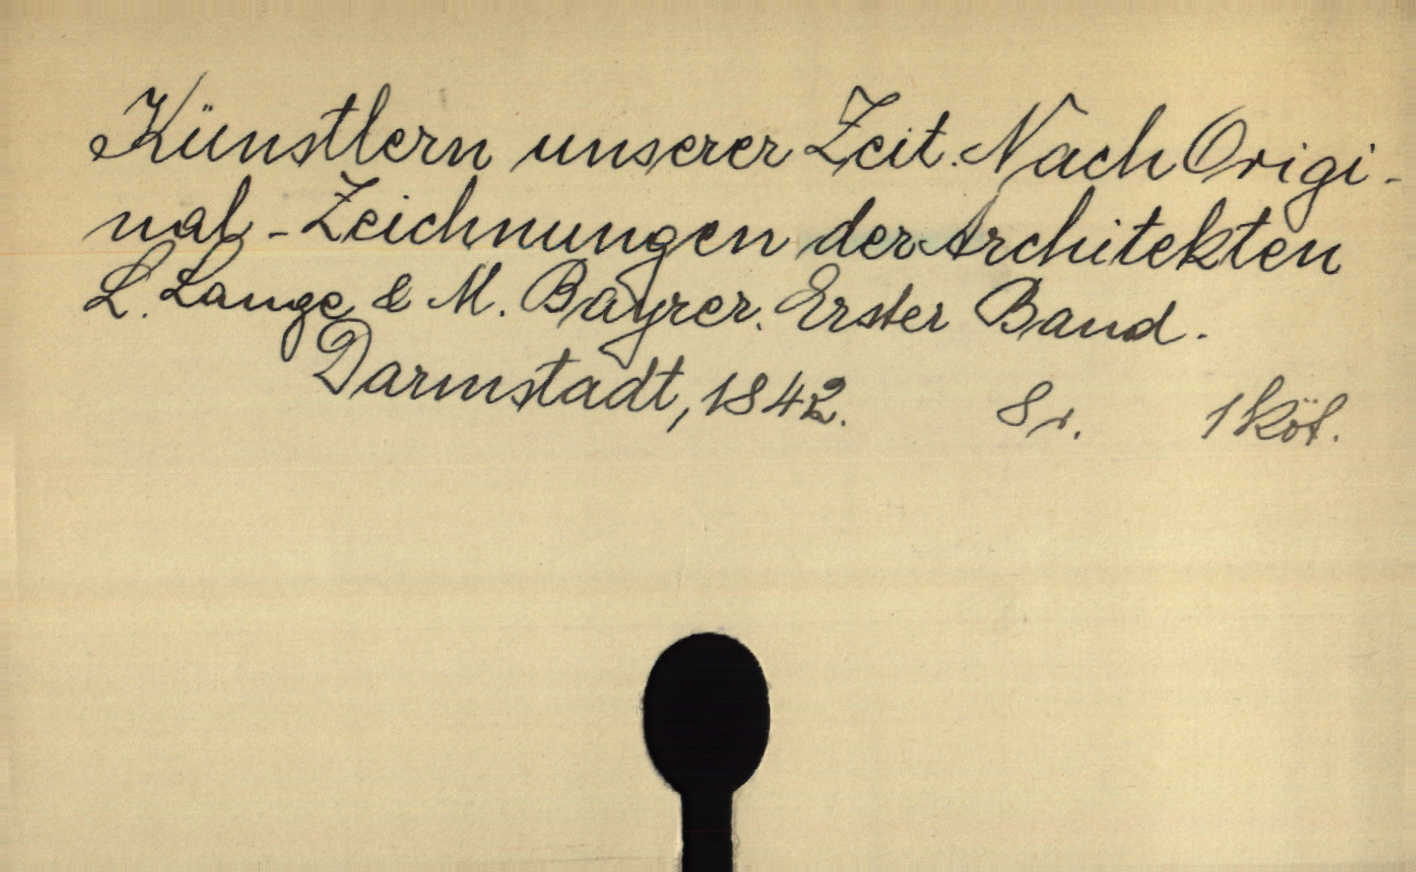 Künstlern unserer Zeit. Nach Origi-
nal-Zeichnungen der Architekten
L. Lange & M. Bayrer. Erster Band.
Darmstadt, 1842. 8r. 1 köt.